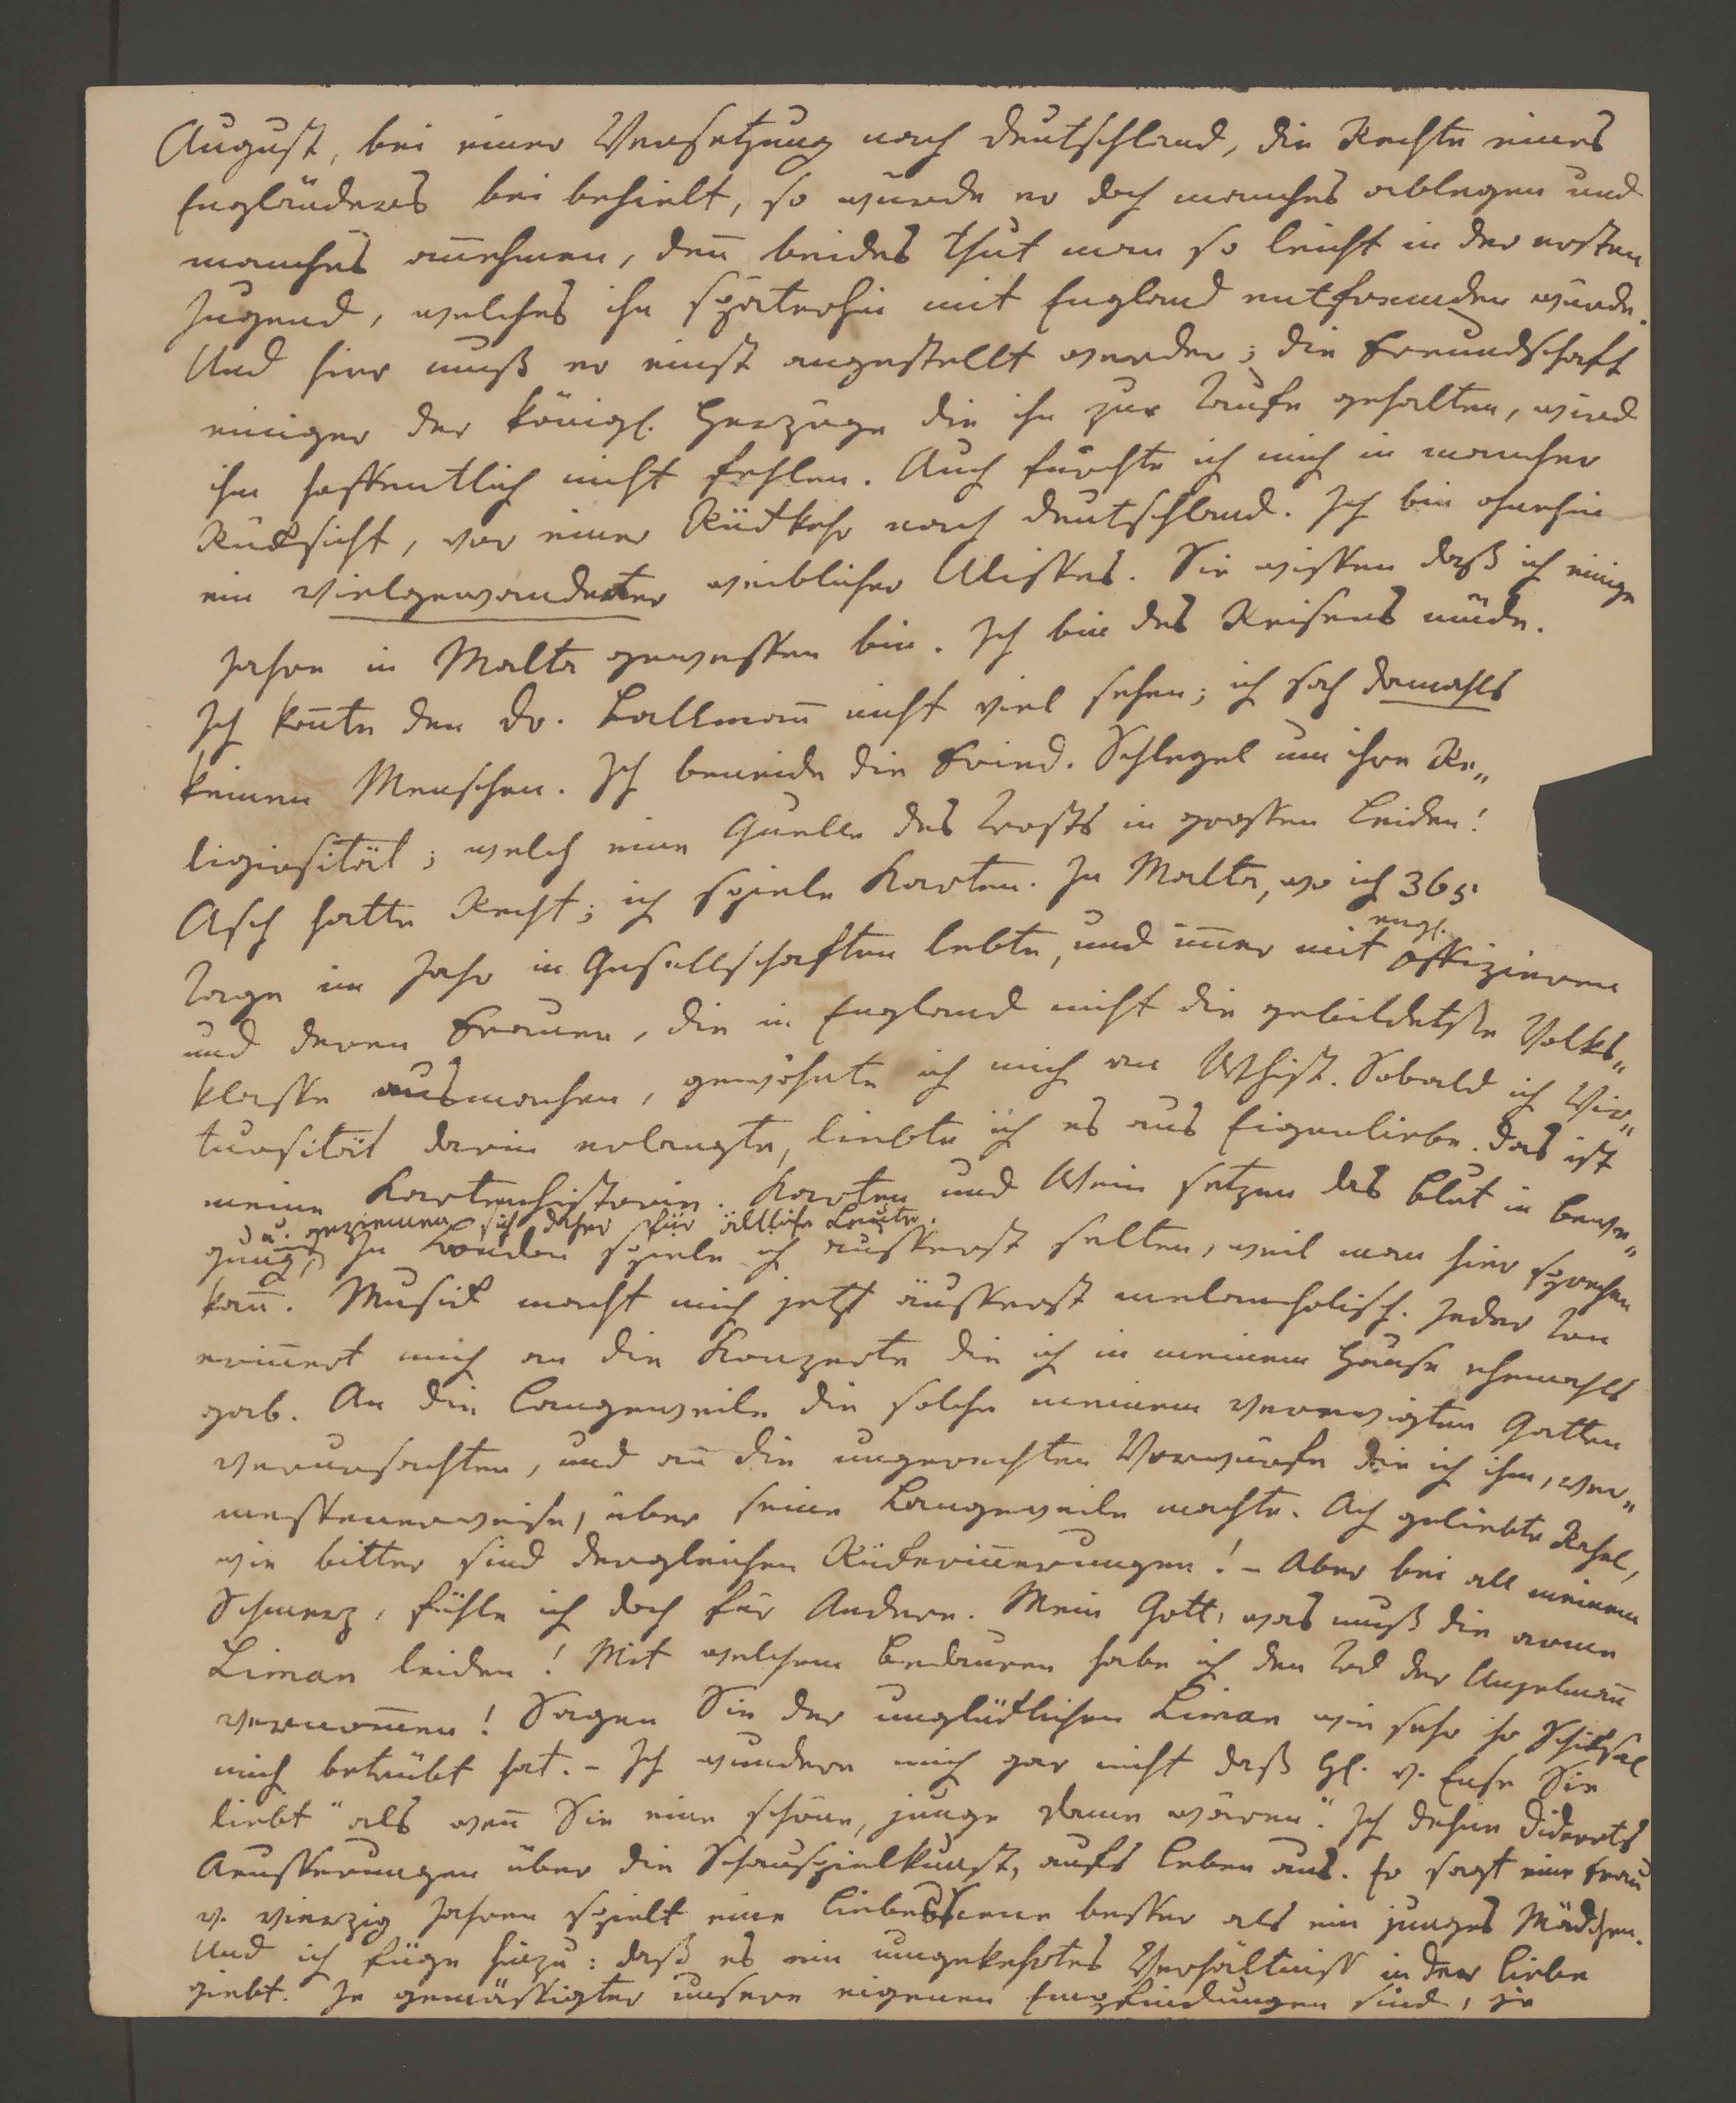 August, bei einer Versetzung nach Deutschland, die Rechte eines
Engländers bei behielt, so würde er doch manches ablegen und
manches añehmen, deñ beides thut man so leicht in der ersten
Jugend, welches ihn späterhin mit England entfremden würde.
Und hier muß er einst angestellt werden; die Freundschaft
einiger der königl. Herzöge die ihn zur Taufe gehalten, wird
ihm hoffentlich nicht fehlen. Auch fürchte ich mich in mancher
Rücksicht, vor einer Rückkehr nach Deutschland. Ich bin ohnehin
ein vielgewanderter weiblicher Ulisses. Sie wissen daß ich einige
Jahre in Malta gewessen bin. Ich bin des Reisens müde.
Ich koñte den Dr. Bollmañ nicht viel sehen; ich sah damahls
keinen Menschen. Ich beneide die Fried. Schlegel um ihre Re„
ligiosität; welch eine Quelle des Trosts in grossen Leiden!
Asch hatte Recht; ich spiele Karten. In Malta, wo ich 365
Tage im Jahr in Gesellschaften lebte, und im̃er mit engl. Offizieren
und deren Frauen, die in England nicht die gebildetste Volks„
klasse ausmachen, gewöhnte ich mich an Whist. Sobald ich Vir„
tuosität darin erlangte, liebte ich es aus Eigenliebe. Das ist
meine Kartenhistorie. Karten und Wein setzen das Blut in bewe„
u. geziemen sich daher für ältliche Leute.
gung, In London spiele ich äusserst selten, weil man hier sprechen
kañ. Musick macht mich jetzt äusserst melancholisch. Jeder Ton
eriñert mich an die Konzerte die ich in meinem Hause ehemahls
gab. An die Langeweile die solche meinem verewigten Gatten
verursachten, und an die ungerechten Vorwürfe die ich ihm, ver„
messenerweise, über seine Langeweile machte. Ach geliebte Rahel,
wie bitter sind dergleichen Rückeriñerungen! – Aber bei all meinem
Schmerz, fühle ich doch für Andere. Mein Gott, was muß die arme
Liman leiden! Mit welchem Bedauren habe ich den Tod der Unzelmañ
vernom̃en! Sagen Sie der unglücklichen Liman wie sehr ihr Schiksal
mich betrübt hat. – Ich wundere mich gar nicht daß H. v. Ense Sie
liebt "als weñ Sie eine schöne, junge Dame wären". Ich dehne Diderots
Aeusserungen über die Schauspielkunst, aufs Leben aus. Er sagt eine Frau
v. vierzig Jahren spielt eine Liebesscene besser als ein junges Mädchen.
Und ich füge hinzu: daß es ein umgekehrtes Verhältniss in der Liebe
giebt. Je gemässigter unsere eigenen Empfindungen sind, je